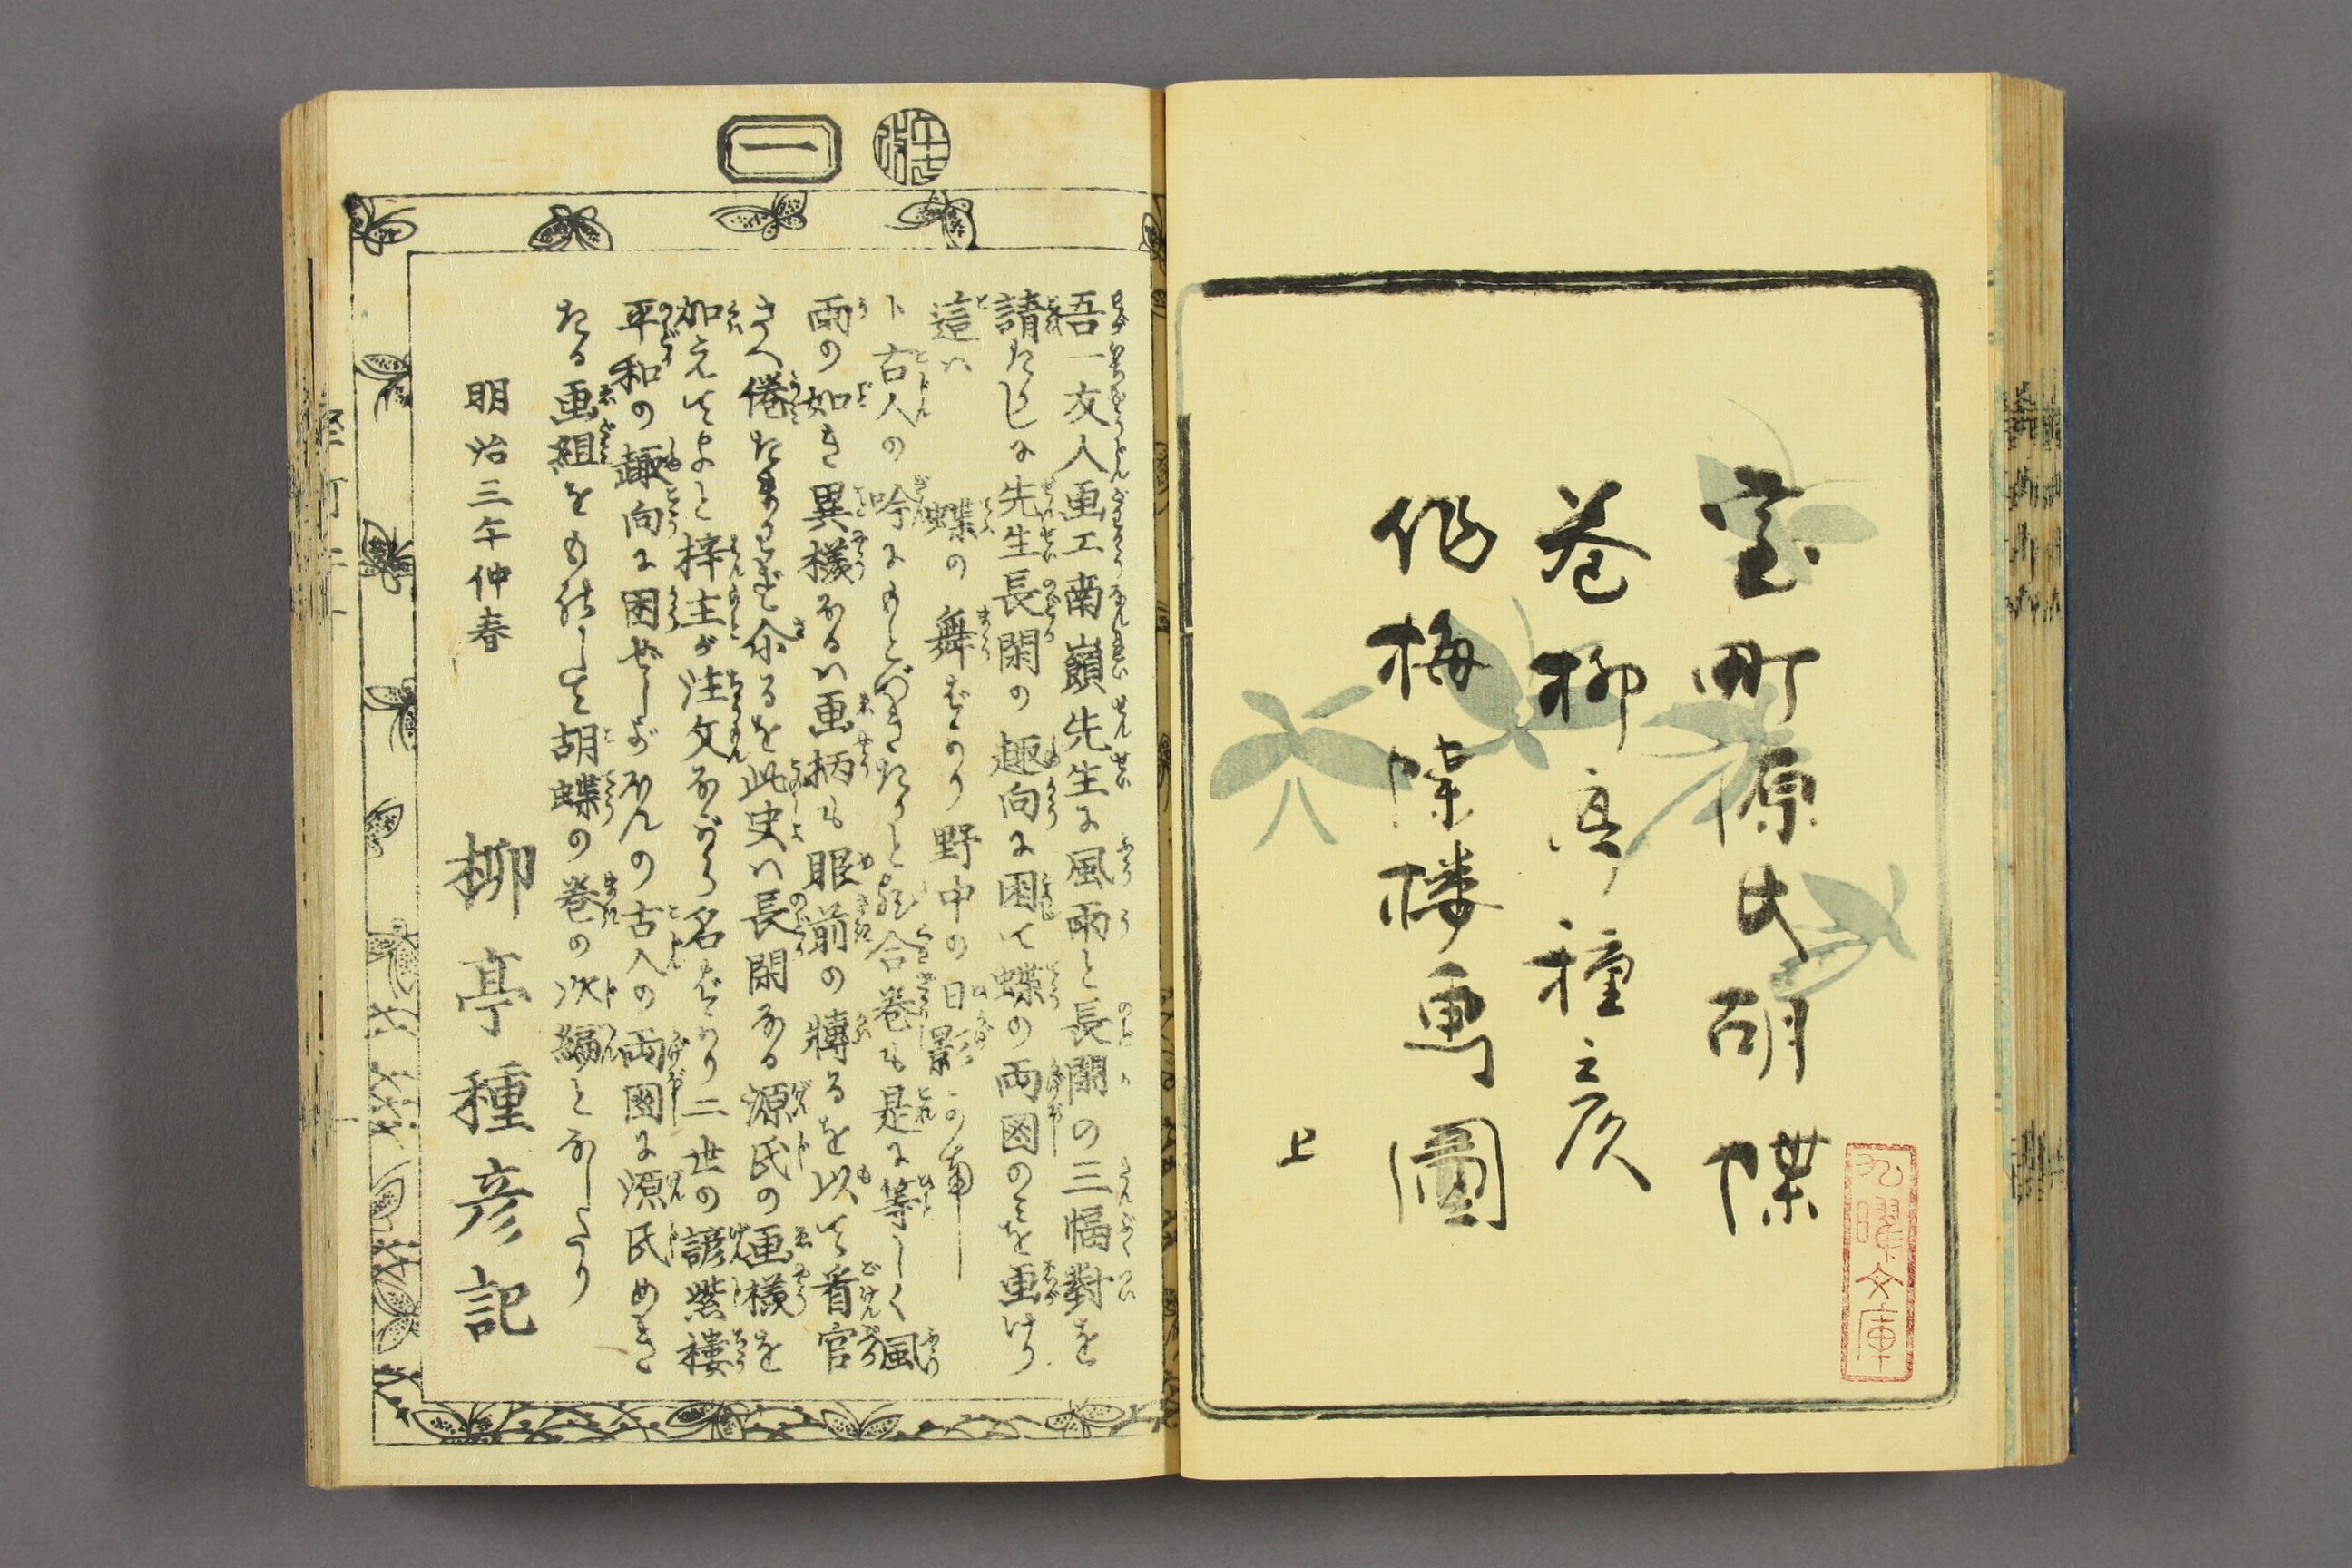 室町源氏胡蝶
巻柳亭種彦
作梅蝶楼画圖
上
九曜文庫
午七改
一
吾一友人画工南嶺先生に風雨と長閑の三幅對を
請たりしに先生長閑の趣向に困て蝶の両図のみを画けり
這ハ 蝶の舞ばかり野中の日影かな
ト古人の吟にもとづきたりと
合巻も是に等しく風
雨の如き異様なるハ画柄も眼前の轉るを以て看官
さへ倦たまはざ余るを此史ハ長閑なる源氏の画様を
加えてよと梓主が注文ながら名ばかり二世の諺紫樓
平和の趣向に困ぜしがかの古人の両図に源氏めきたる
画組をものして胡蝶の巻の次編となしたり
明治三午仲春
柳亭種彦記